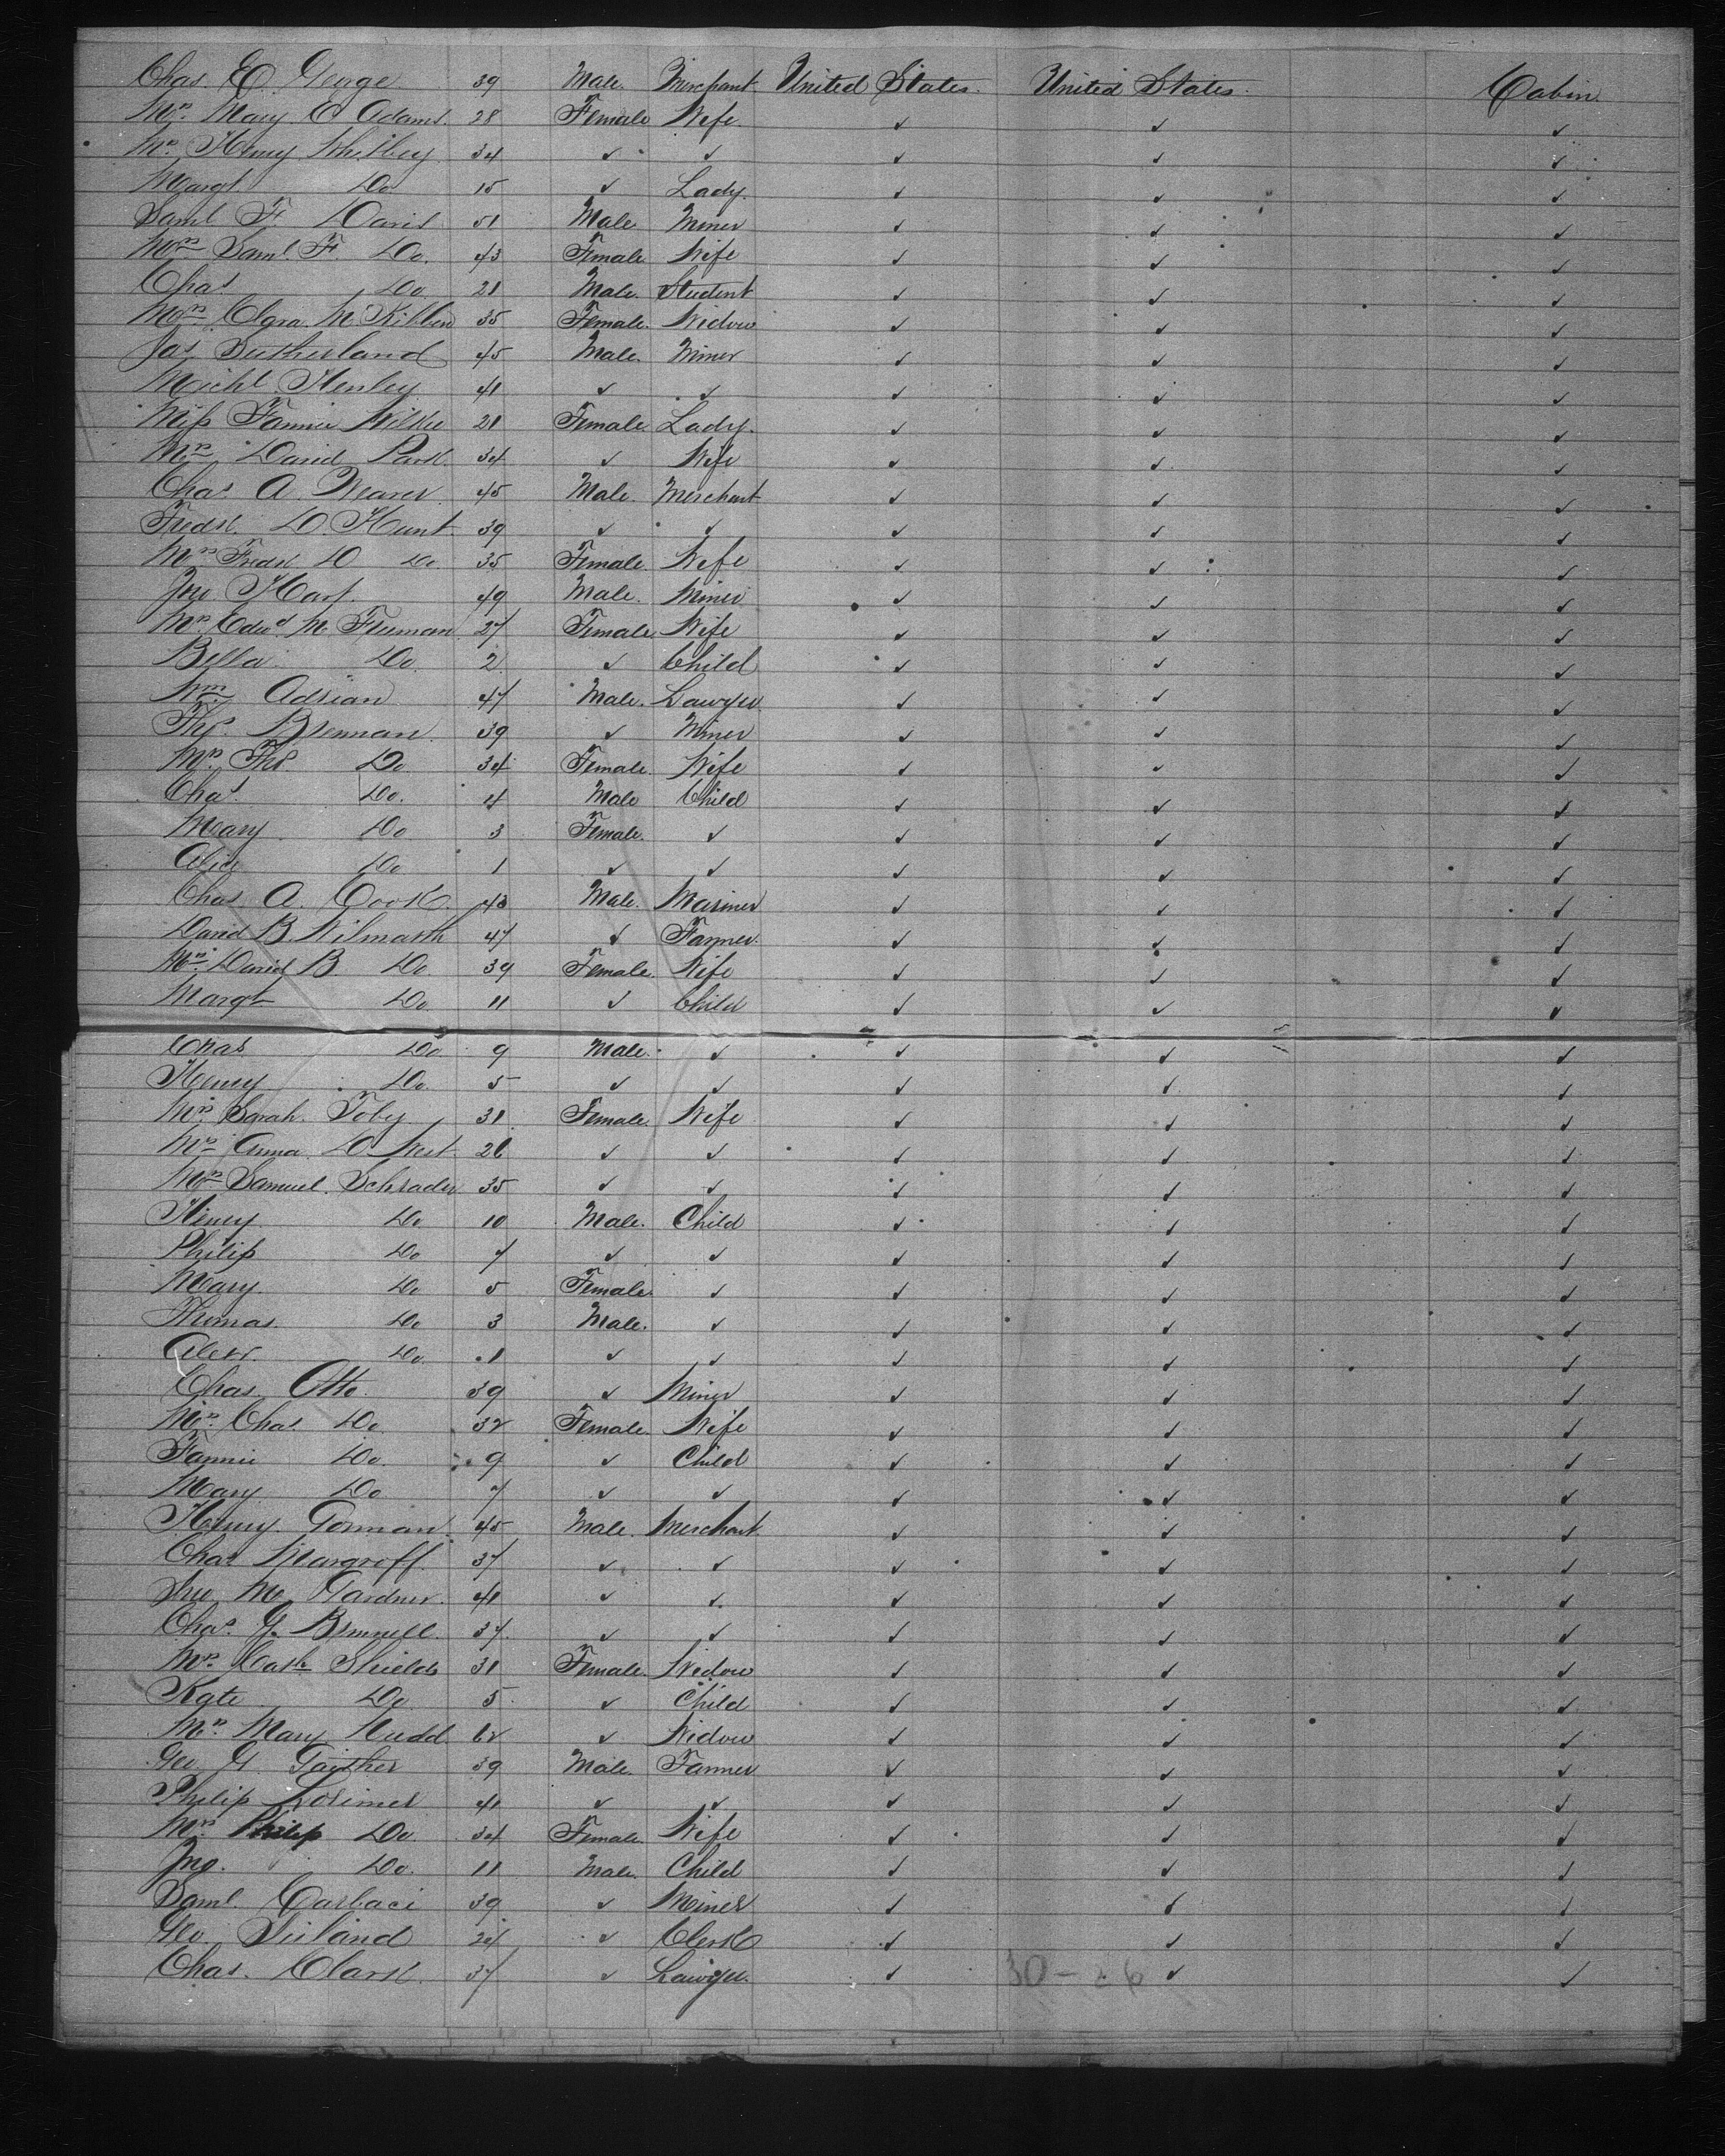 Chas. E. George 39 Male. Merchant United States. United States. Cabin.
Mrs. Mary E Adams. 28 Female Wife. ✓ ✓ ✓
Mrs. Henry Whitbey 34 ✓ ✓ ✓ ✓ ✓
Margt. Do 15 ✓ Lady. ✓ ✓ ✓
Saml. F. Davis. 51 Male Miner ✓ ✓ ✓
Mrs. Saml. F. Do. 43 Female Wife ✓ ✓ ✓
Chas. Do 21 Male. Student ✓ ✓ ✓
Mrs. Clara McKibben 35 Female. Widow ✓ ✓ ✓
Jas. Sutherland 45 Male. Miner ✓ ✓ ✓
Michl. Henley 41 ✓ ✓ ✓ ✓ ✓
Miss Fannie Wilkie 21 Female Lady. ✓ ✓ ✓
Mrs. David Park. 34 ✓ Wife ✓ ✓ ✓
Chas. A. Weaver 45 Male. Merchant ✓ ✓ ✓
Fredk. D. Hunt. 39 ✓ ✓ ✓ ✓ ✓
Mrs. Fredk D Do. 35 Female. Wife ✓ ✓ ✓
Jno. Hart. 49 Male. Miner ✓ ✓ ✓
Mrs. Edwd. M. Freeman 27 Female. Wife ✓ ✓ ✓
Bella Do 2 ✓ Child ✓ ✓ ✓
Wm. Adrian 47 Male. Lawyer ✓ ✓ ✓
Ths. Brennan. 39 ✓ Miner ✓ ✓ ✓
Mrs. Ths. Do 34 Female. Wife ✓ ✓ ✓
Chas. Do. 4 Male Child ✓ ✓ ✓
Mary Do 3 Female. ✓ ✓ ✓ ✓
Alice Do 1 ✓ ✓ ✓ ✓ ✓
Chas A. Cook. 43 Male. Mariner ✓ ✓ ✓
David B. Wilmarth 47 ✓ Farmer. ✓ ✓ ✓
Mrs. David B. Do 39 Female. Wife ✓ ✓ ✓
Margt Do 11 ✓ Child ✓ ✓ ✓
Chas Do 9 Male. ✓ ✓ ✓ ✓
Henry Do. 5 ✓ ✓ ✓ ✓ ✓
Mrs. Sarah. Toby. 31. Female. Wife ✓ ✓ ✓
Mrs. Anna. D. West. 26 ✓ ✓ ✓ ✓ ✓
Mrs. Samuel. Schrader 35 ✓ ✓ ✓ ✓ ✓
Henry Do 10 Male. Child ✓ ✓ ✓
Philip Do 7 ✓ ✓ ✓ ✓ ✓
Mary Do 5 Female. ✓ ✓ ✓ ✓
Thomas. Do 3 Male. ✓ ✓ ✓ ✓
Alexr. Do. 1 ✓ ✓ ✓ ✓ ✓
Chas. Otto. 39 ✓ Miner ✓ ✓ ✓
Mrs. Chas. Do. 32 Female. Wife ✓ ✓ ✓
Fannie Do. 9 ✓ Child ✓ ✓ ✓
Mary Do 7 ✓ ✓ ✓ ✓ ✓
Henry. Gorman. 45 Male. Merchant. ✓ ✓ ✓
Chas Margroff. 37 ✓ ✓ ✓ ✓ ✓
Jno. M. Gardner. 41 ✓ ✓ ✓ ✓ ✓
Chas. G. 37. ✓ ✓ ✓ ✓ ✓
Mrs. Cath Shields 31 Female. Widow ✓ ✓ ✓
Kate Do 5 ✓ Child ✓ ✓ ✓
Mrs. Mary Hudd 62 ✓ Widow ✓ ✓ ✓
Geo. G. Gaither 39 Male. Farmer ✓ ✓ ✓
Philip Lorimer 41 ✓ ✓ ✓ ✓ ✓
Mrs. Philip Do. 34 Female. Wife ✓ ✓ ✓
Jno. Do. 11 Male. Child ✓ ✓ ✓
Saml. Carbaci 39 ✓ Miner ✓ ✓ ✓
Geo. 24 ✓ Clerk ✓ ✓ ✓
Chas. Clark. 37 ✓ Lawyer. ✓ 30 - 26 ✓ ✓